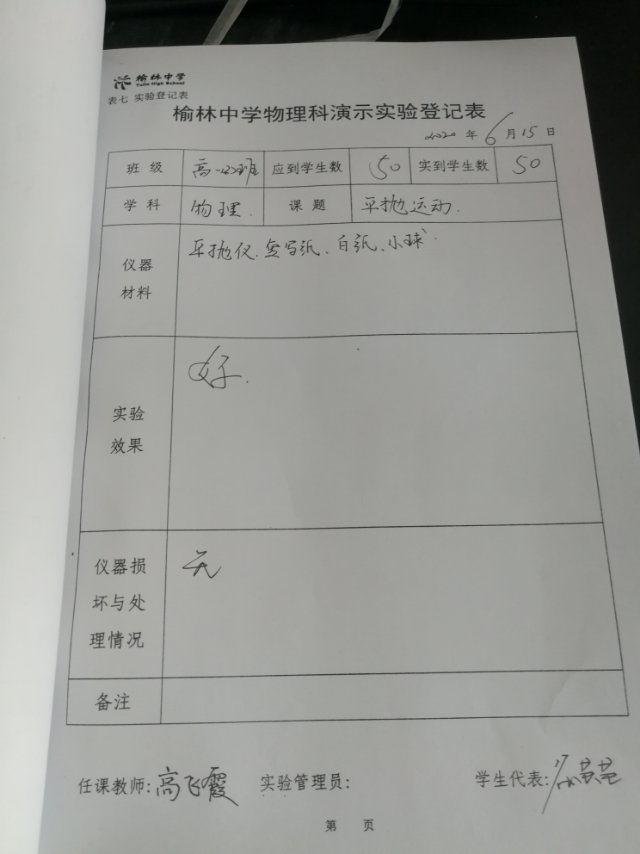 榆林中学
Yulin High School
表七 实验登记表
榆林中学物理科演示实验登记表
2020 年 6 月 15 日
班级 高一 班 应到学生数 50 实到学生数 50
学科 物理. 课题 平抛运动.
仪器材料 平抛仪、复写纸、白纸、小球.
实验效果 好.
仪器损坏与处理情况 无
备注
任课教师:高飞霞 实验管理员: 学生代表:
第 页